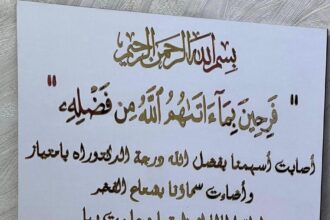 بِسْمِ اللهِ الرَّحْمنِ الرَّحِيمِ
" فَرِحِينَ بِمَآ ءَاتَىٰهُمُ ٱللَّهُ مِن فَضْلِهِۦ "
أصابت أسهمنا بفضل الله درجة الدكتوراه بامتياز
وأضاءت سماؤنا بشعاع الفخر